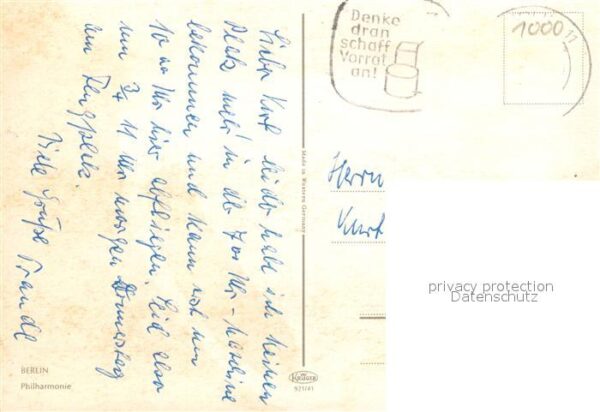 Denke
dran
schaff
Vorrat
an!
1000 11
Lieber Kurt leider habe ich keinen
Platz mehr in der 7oo Uhr-Maschine
bekommen und kann erst um
10 oo Uhr hier abfliegen. Seid also
um 3/4 11 Uhr morgen Donnerstag
am Flugplatz.
Viele Grüße Traudl
Made in Western Germany
Herrn
Kurt
privacy protection
Datenschutz
BERLIN
Philharmonie
KRÜGER
921/41